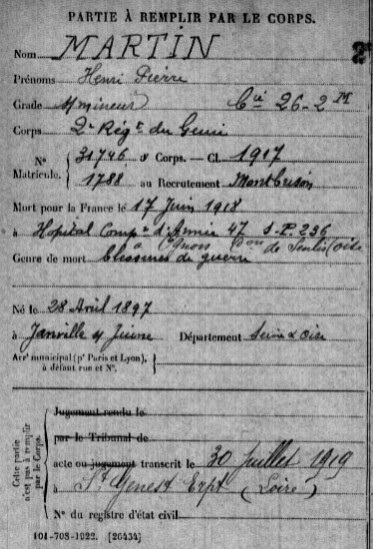 PARTIE À REMPLIR PAR LE CORPS.
Nom MARTIN
Prénoms Henri Pierre
Grade s/mineur Cie 26-2 M
Corps 2e Régt du Génie
N° 31746 au Corps. — Cl. 1917
Matricule. 1788 au Recrutement Montbrison
Mort pour la France le 17 Juin 1918
à Hopital Comp. d'Armée 47 S.P. 236
à Ognon Con de Senlis (Oise
Genre de mort blessures de guerre
Né le 28 Avril 1897
à Janville s/ Juine Département Seine & Oise
Arrt municipal (pr Paris et Lyon),
à défaut rue et N°.
Cette partie
n'est pas à remplir
par le Corps.
Jugement rendu le
par le Tribunal de
acte ou jugement transcrit le 30 Juillet 1919
à St Genest Lerpt (Loire)
N° du registre d'état civil
101-708-1922. [26434]